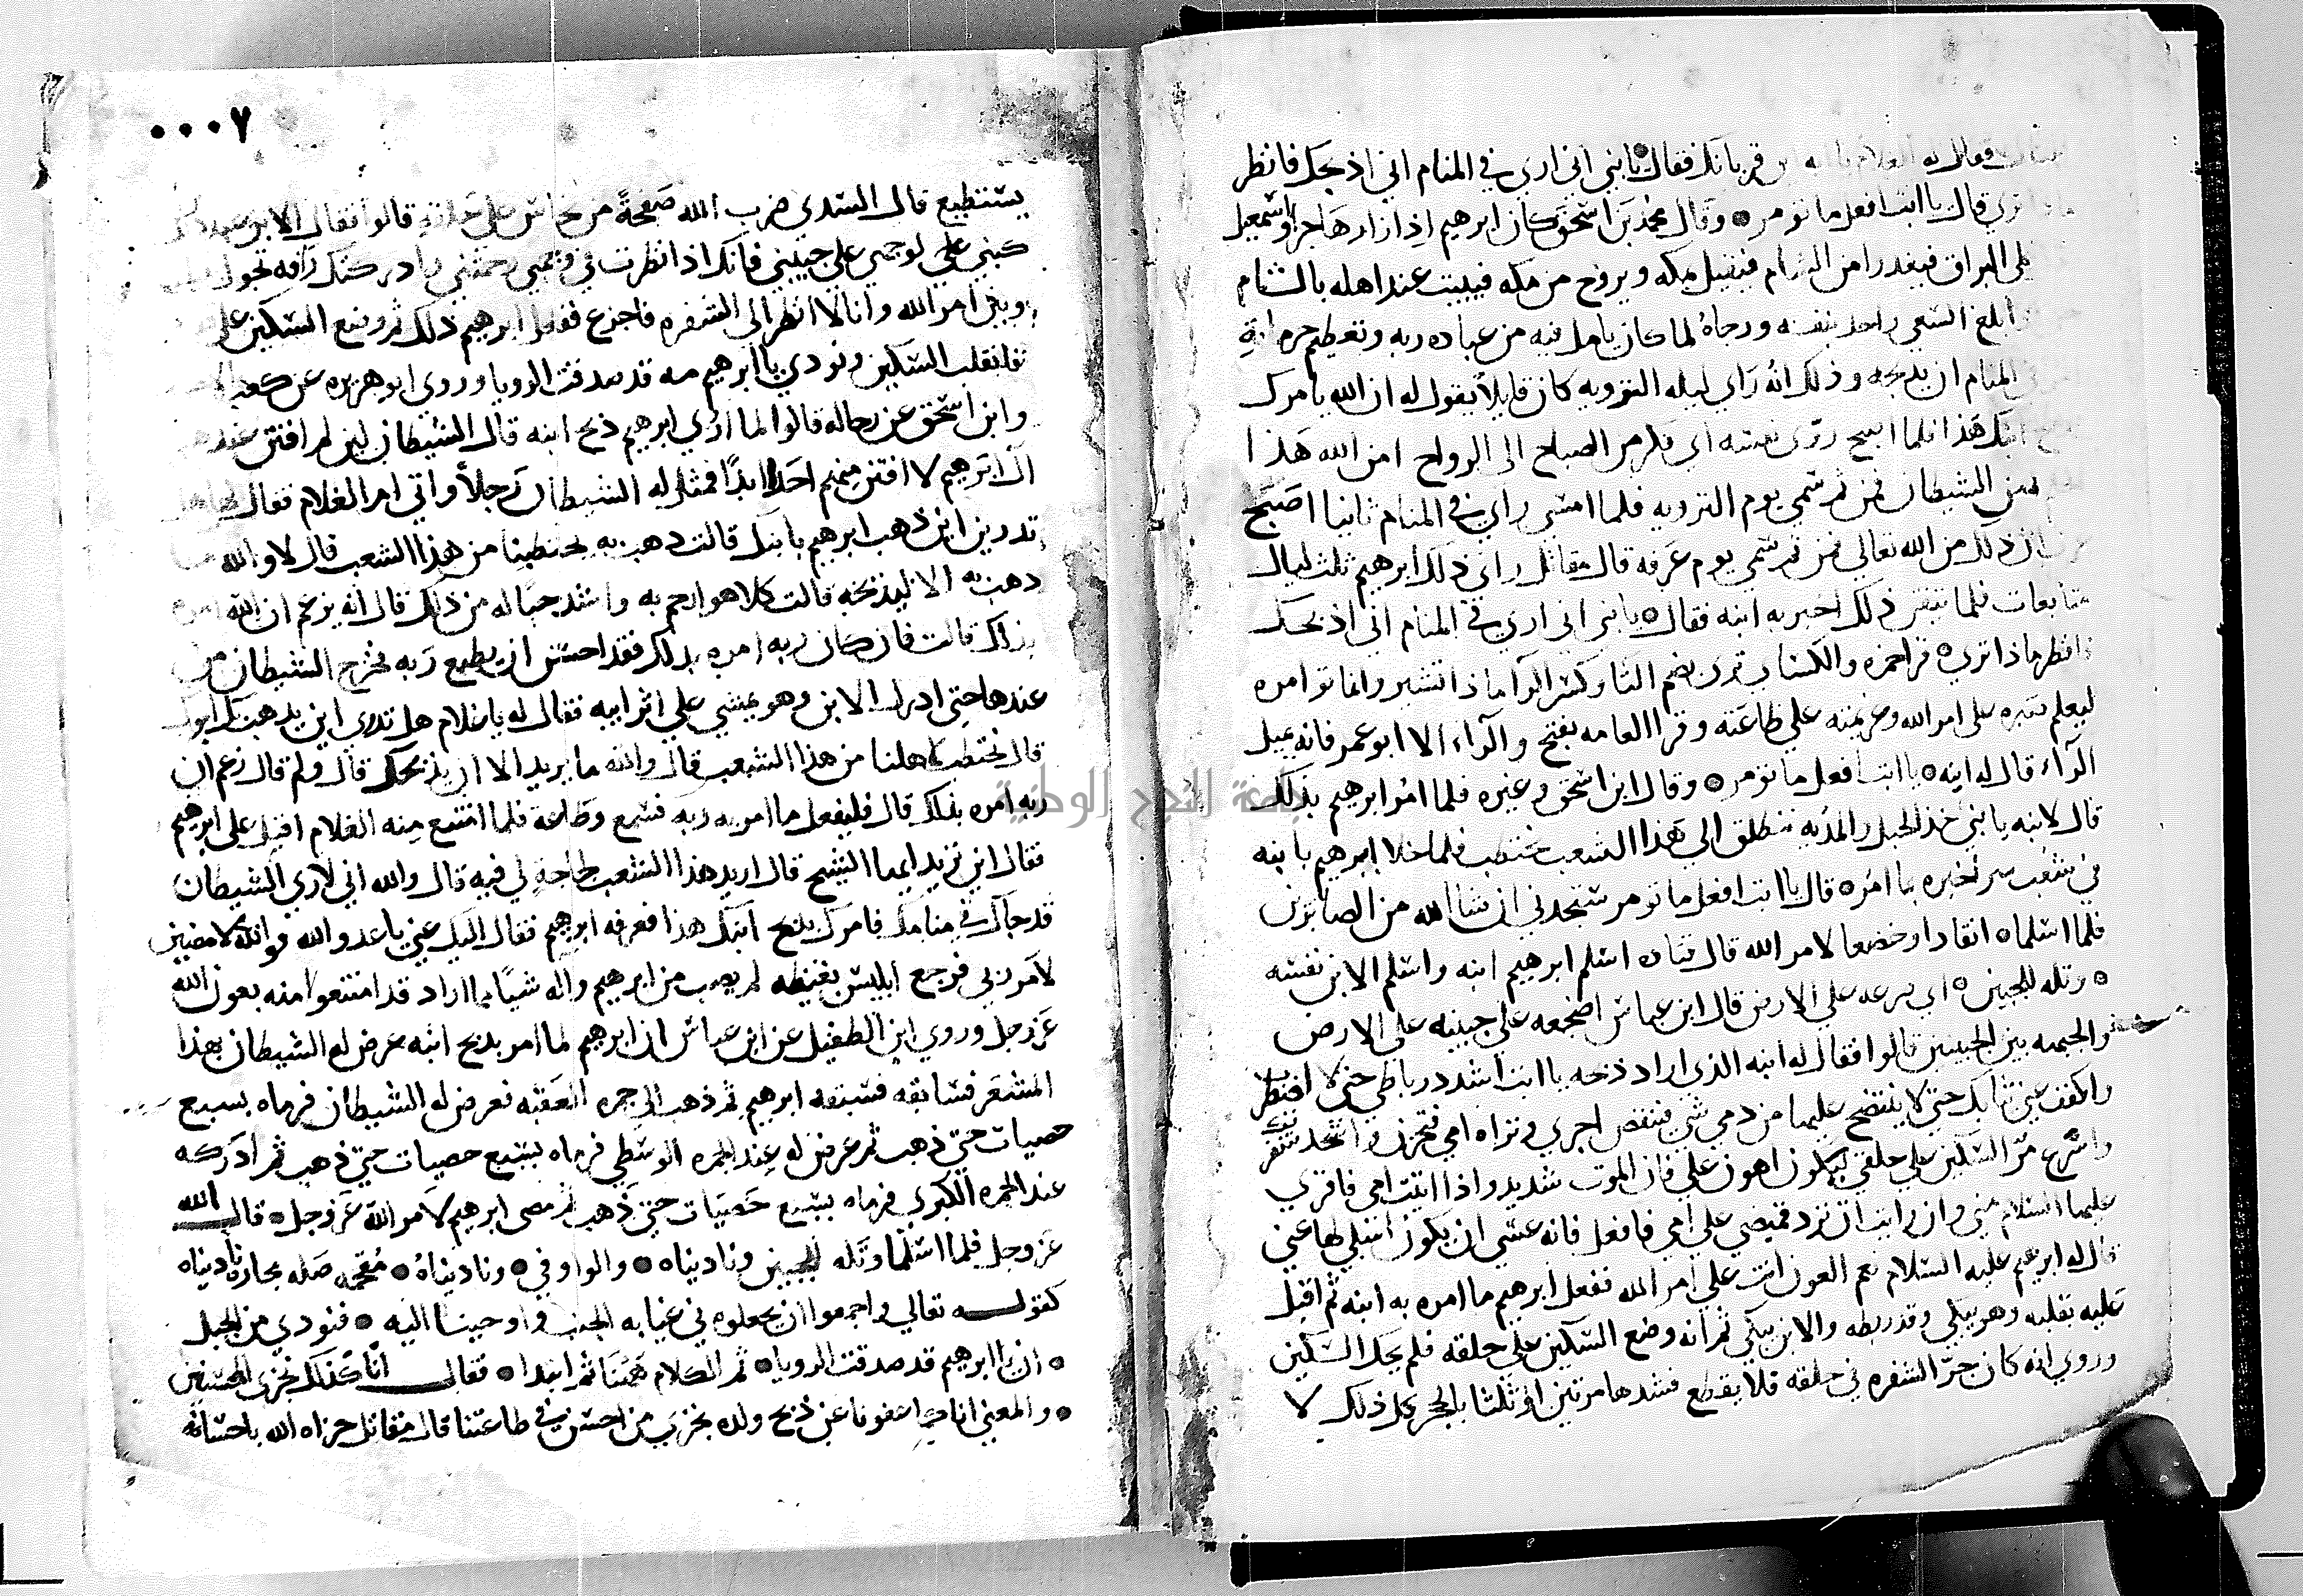 فقال له الغلام يا ابه اين قربانك فقال يا بني اني اري في المنام اني اذبحك فانظر
تري قال يا ابت افعل ما تومر وقال محمد بن اسحق كان ابرهيم اذا زار هاجر واسمعيل
علي البراق فيغدوا من الشام فيقيل بمكه ويروح من مكه فيبيت عند اهله بالشام
بلغ السعي واخذ بنفسه ورجاه لما كان يامل فيه من عباده ربه وتعظيم حرماته
المنام ان يذبحه وذلك انه راي ليله الترويه كان قايلا يقول له ان الله يامرك
ابنك هذا فلما اصبح روي نفسه اي فكر من الصباح الي الرواح امن الله هذا
من الشيطان فمن ثم سمي يوم الترويه فلما امسي راي في المنام ثانيا اصبح
ان ذلك من الله تعالي فمن ثم سمي يوم عرفه قال مقاتل راي ذلك ابرهيم ثلث ليال
متتابعات فلما تيقن ذلك اخبر به ابنه فقال يا بني اني اري في المنام اني اذبحك
فانظر ماذا تري قرا حمزه والكسائي تري بضم التا وكسر الرا ماذا تشير وانما توامره
ليعلم صبره علي امر الله وعزيمته علي طاعته وقرا العامه بفتح والراء الا ابو عمر فانه يميل
الراء قال له ابنه يا ابت افعل ما تومر وقال ابن اسحق وغيره فلما امر ابرهيم بذلك
قال لابنه يا بني خذ الحبل والمديه ننطلق الي هذا الشعب نحتطب فلما خلا ابرهيم بابنه
في شعب اخبره بما امر قال يا ابت افعل ما تومر ستجدني ان شا الله من الصابرين
فلما اسلما انقادا وخضعا لامر الله قال قتاده اسلم ابرهيم ابنه واسلم الابن نفسه
وتله للجبين اي صرعه علي الارض قال ابن عباس اضجعه علي جبينه علي الارض
والجبهه بين الجبينين قالوا فقال له ابنه الذي اراد ذبحه يا ابت اشدد رباطي حتي لا اضطرب
واكفف عني ثيابك حتي لا ينتضح عليها من دمي شي فينقص اجري وتراه امي فتحزن واشحذ شفرتك
واسرع مر السكين علي حلقي ليكون اهون علي فان الموت شديد واذا اتيت امي فاقري
عليها السلام مني وان رايت ان ترد قميصي علي امي فافعل فانه عسي ان يكون اسلي لها عني
قال له ابرهيم عليه السلام نعم العون انت علي امر الله ففعل ابرهيم ما امره به ابنه ثم اقبل
عليه يقبله وهو يبكي وقد ربطه والابن يبكي ثم انه وضع السكين علي حلقه فلم يحك السكين
وروي انه كان جر الشفره في حلقه فلا يقطع فشدها مرتين او ثلثا بالحجر كل ذلك لا
٠٠٠٧
يستطيع قال السدي ضرب الله صفحة من نحاس علي حلقه قالوا فقال الابن عند ذلك
كبني علي لوجهي علي جبيني فانك اذا نظرت في وجهي رحمتني وادركتك رافه تحول
وبين امر الله وانا لا انظر الي الشفره فاجزع ففعل ابرهيم ذلك ثم وضع السكين علي
فانقلب السكين ونودي يا ابرهيم مه قد صدقت الرويا وروي ابو هريره عن كعب
وابن اسحق عن رجاله قالوا لما اري ابرهيم ذبح ابنه قال الشيطان لين لم افتن عند هذا
ال ابرهيم لا افتن منهم احدا ابدا فمثل له الشيطان رجلا واتي ام الغلام فقال لها هل
تدرين اين ذهب ابرهيم بابنك قالت ذهب به يحتطبنا من هذا الشعب قال لا والله
ذهب به الا ليذبحه قالت كلا هو ارحم به واشد حبا له من ذلك قال انه يزعم ان الله امره
بذلك قالت فان كان ربه امره بذلك فقد احسن ان يطيع ربه فخرج الشيطان من
عندها حتي ادرك الابن وهو يمشي علي اثر ابيه فقال له يا غلام هل تدري اين يذهب بك ابوك
قال نحتطب لاهلنا من هذا الشعب قال والله ما يريد الا ان يذبحك قال ولم قال زعم ان
ربه امره بذلك قال فليفعل ما امر به ربه فسمع وطاعة فلما امتنع منه الغلام اقبل علي ابرهيم
فقال اين تريد ايها الشيخ قال اريد هذا الشعب لحاجة لي فيه قال والله اني لاري الشيطان
قد جاك في منامك فامرك بذبح ابنك هذا فعرفه ابرهيم فقال اليك عني يا عدو الله فوالله لامضين
لامر ربي فرجع ابليس بغيظه لم يصب من ابرهيم واله شيا مما اراد قد امتنعوا منه بعون الله
عز وجل وروي ابن الطفيل عن ابن عباس ان ابرهيم لما امر بذبح ابنه عرض له الشيطان بهذا
المشعر فسابقه فسبقه ابرهيم ثم ذهب الي جمره العقبه فعرض له الشيطان فرماه بسبع
حصيات حتي ذهب ثم عرض له عند الجمره الوسطي فرماه بسبع حصيات حتي ذهب ثم ادركه
عند الجمره الكبري فرماه بسبع حصيات حتي ذهب ثم مضي ابرهيم لامر الله عز وجل قال الله
عز وجل فلما اسلما وتله للجبين وناديناه والواو في وناديناه مقحمه صله مجازه ناديناه
كقوله تعالي واجمعوا ان يجعلوه في غيابه الجب واوحينا اليه فنودي من الجبل
ان يا ابرهيم قد صدقت الرويا ثم الكلام ههنا ثم ابتدا فقال انا كذلك نجزي المحسنين
والمعني انا كما عفونا عن ذبح ولده نجزي من احسن في طاعتنا قال مقاتل جزاه الله باحسانه
جامعة النجاح الوطنية